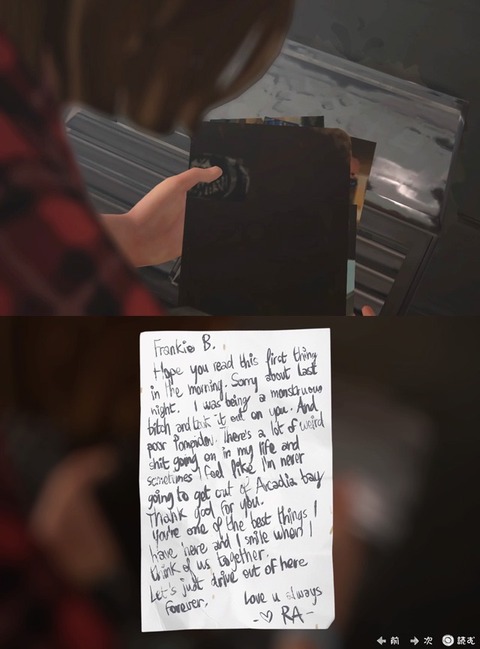 Frankie B.
Hope you read this first thing
in the morning. Sorry about last
night. I was being a monstruous
bitch and took it out on you. And
poor Pompidou. There's a lot of weird
shit going on in my life and
sometimes I feel like I'm never
going to get out of Arcadia bay
Thank god for you.
You're one of the best things I
have here and I smile when I
think of us together.
Let's just drive out of here
forever.
Love u always
-♡ RA-
← 前 → 次 ◎ 読む